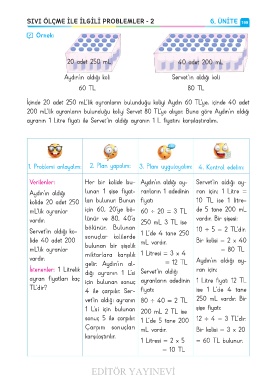 SIVI ÖLÇME İLE İLGİLİ PROBLEMLER - 2
6. ÜNİTE
Örnek:
20 adet 250 mL
40 adet 200 mL
Aydın'ın aldığı koli
Servet'in aldığı koli
60 TL
80 TL
İçinde 20 adet 250 mL'lik ayranların bulunduğu koliyi Aydın 60 TL'ye, içinde 40 adet
200 mL'lik ayranların bulunduğu koliyi Servet 80 TL'ye alıyor. Buna göre Aydın'ın aldığı
ayranın 1 Litre fiyatı ile Servet'in aldığı ayranın 1 L fiyatını karşılaştıralım.
1. Problemi anlayalım:
Verilenler:
Aydın'ın aldığı
kolide 20 adet 250
mL'lik ayranlar
vardır.
Servet'in aldığı ko-
lide 40 adet 200
mL'lik ayranlar
vardır.
İstenenler: 1 Litrelik
ayran fiyatları kaç
TL'dir?
2. Plan yapalım:
Her bir kolide bu-
lunan 1 şişe fiyat-
ları bulunur. Bunun
için 60, 20'ye bö-
lünür ve 80, 40'a
bölünür. Bulunan
sonuçlar kolilerde
bulunan bir şişelik
miktarlara karşılık
gelir. Aydın'ın al-
dığı ayranın 1 L'si
için bulunan sonuç
4 ile çarpılır. Ser-
vet'in aldığı ayranın
1 L'si için bulunan
sonuç 5 ile çarpılır.
Çarpım sonuçları
karşılaştırılır.
3. Planı uygulayalım:
Aydın'ın aldığı ay-
ranların 1 adedinin
fiyatı
60 ÷ 20 = 3 TL
250 mL 3 TL ise
1 L'de 4 tane 250
mL vardır.
1 Litresi = 3 x 4
= 12 TL
Servet'in aldığı
ayranların adedinin
fiyatı:
80 ÷ 40 = 2 TL
200 mL 2 TL ise
1 L'de 5 tane 200
mL vardır.
1 Litresi = 2 x 5
= 10 TL
4. Kontrol edelim:
Servet'in aldığı ay-
ran için; 1 Litre =
10 TL ise 1 litre-
de 5 tane 200 mL
vardır. Bir şişesi
10 ÷ 5 = 2 TL'dir.
Bir kolisi = 2 x 40
= 80 TL
Aydın'ın aldığı ay-
ran için;
1 Litre fiyatı 12 TL
ise 1 L'de 4 tane
250 mL vardır. Bir
şişe fiyatı:
12 ÷ 4 = 3 TL'dir.
Bir kolisi = 3 x 20
= 60 TL bulunur.
EDİTÖR YAYINEVİ